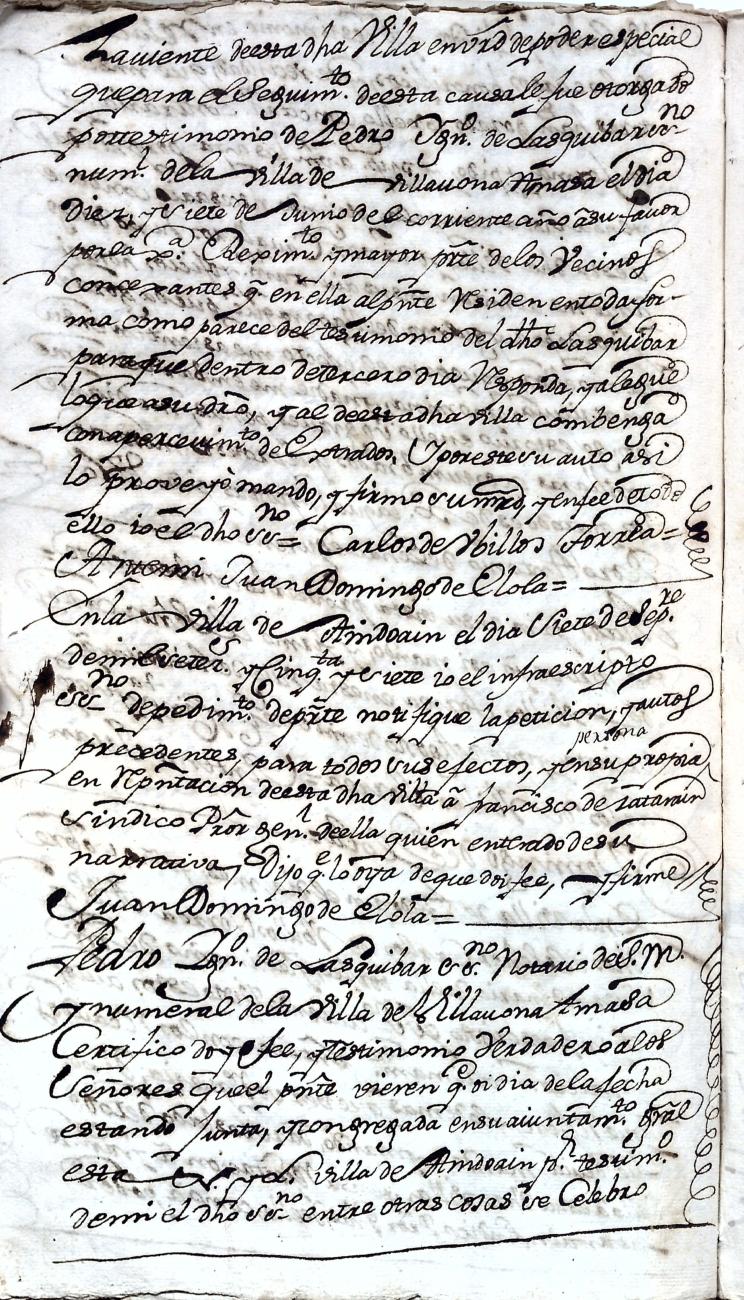 Laviente deesta dha Villa envrd depoder especial
quepara el Seguimto. deesta causa le fue otorgado
portestimonio de Pedro Ygno. de Lasquibar esno
numl. dela villa de Villavona Amasa el dia
diez, y siete de Junio del corriente año asu favor
porla Jxa. Reximto. ymayor prte delos Vecinos
concexantes q. en ella alpnte Residen entoda for-
ma como parece del testimonio del dho Lasquibar
paraque dentro detercero dia Responda, y alegue
loque asu dro, y al deesta dha villa combenga
conapercevimto. de Extrados, Yporeste su auto asi
lo proveyò mando, y firmo su mrd, yenfee detodo
ello io el dho esno= Carlos de Ybillos Torrea=
Antemi Juan Domingo de Elola=
Enla villa de Aindoain el dia Siete de Sepre.
demil seters. y Cinqta y siete io el infraescripto
esno depedimto. deprte notifique lapeticion, yautos
persona
precedentes, para todos sus efectos, yensu propia
en Rpntacion deesta dha villa à francisco de iatarain
Sindico Pror genl. deella quien enterado desu
narrativa, Dijo qe looya deque doi fee, y firmè
Juan Domingo de Elola=
Pedro Ygno. de Lasquibar esno. Notario de S. M.
y numeral dela villa de Villavona Amasa
Certifico doy fee, ytestimonio Verdadero alos
Señores queel pnte vieren qe oi dia dela fecha
estando Junta, ycongregada ensu aiuntamto. gral
esta N. y L. villa de Aindoain pr. testimo.
demi el dho esno entre otras cosas se Celebro